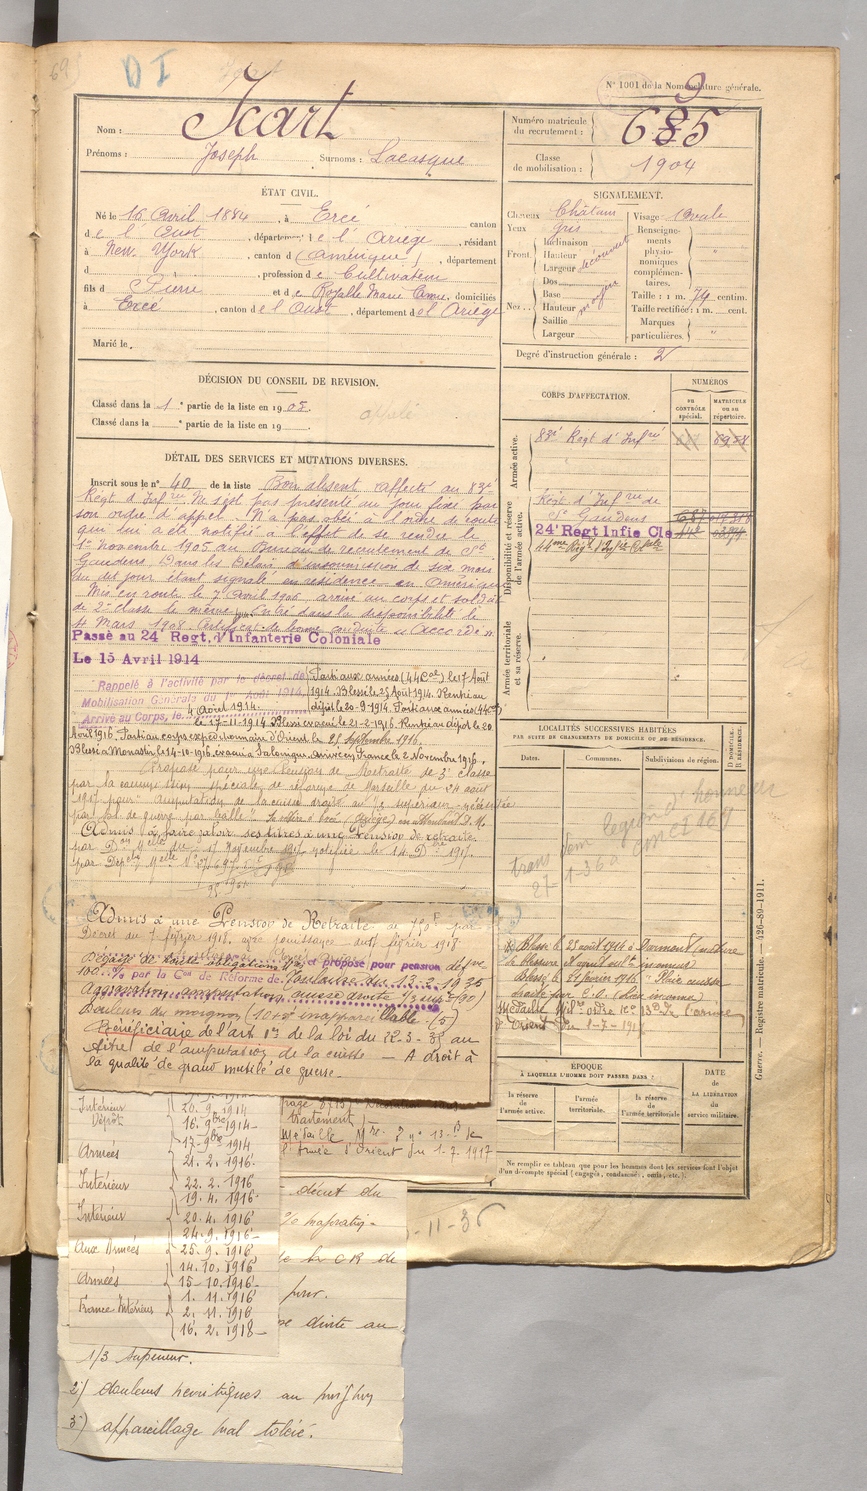 D I
N° 1001 de la Nomenclature générale.
Nom : Icart
Prénoms : Joseph Surnoms : Lacasque
Numéro matricule du recrutement : 685
9
Classe de mobilisation : 1904
ÉTAT CIVIL.
Né le 16 Avril 1884, à Ercé canton
de l'Oust, département de l'Ariège, résidant
à New York, canton d (Amérique), département
d , profession de Cultivateur
fils de Pierre et de Rosalie Marie Anne, domiciliés
à Ercé, canton de l Oust, département de l Ariège
Marié le
SIGNALEMENT.
Cheveux Châtain
Yeux gris
Front. Inclinaison
Hauteur
Largeur découvert
Nez Dos
Base moyen
Hauteur
Saillie
Largeur
Visage Ovale
Renseignements physionomiques complémentaires. "
Taille : 1 m. 74 centim.
Taille rectifiée : 1 m. cent.
Marques particulières. "
Degré d'instruction générale : 2
DÉCISION DU CONSEIL DE REVISION.
Classé dans la 1e partie de la liste en 1905.
Classé dans la e partie de la liste en 19
appelé
CORPS D'AFFECTATION.
NUMÉROS
AU CONTRÔLE SPÉCIAL.
MATRICULE OU AU RÉPERTOIRE.
Armée active.
83e Régt d'Infrie
Disponibilité et réserve de l'armée active.
Régt d'Infrie de
St Gaudens
24e Regt Infie Cle
44me Régt d'Infie Cole
Armée territoriale et sa réserve.
DÉTAIL DES SERVICES ET MUTATIONS DIVERSES.
Inscrit sous le n° 40 de la liste Bon absent affecté au 83e
Régt d'Infrie. Ne s'est pas présenté au jour fixé par
son ordre d'appel. N'a pas obéi à l'ordre de route
qui lui a été notifié à l'effet de se rendre le
1er novembre 1905 au Bureau de recrutement de St
Gaudens. Dans les délais d'insoumission de six mois
étant signalé en résidence en Amérique
Mis en route le 7 Avril 1906 arrivé au corps et soldat
de 2e classe le même jour. Entré dans la disponibilité le
11 Mars 1908. Certificat de bonne conduite "Accordé".
Passé au 24e Regt. d'Infanterie Coloniale
Le 15 Avril 1914
Rappelé à l'activité par le décret de
Mobilisation Générale du 1er Août 1914
Arrivé au Corps, le 4 Août 1914.
Parti aux armées (44 Col) le 17 Août
1914. Blessé le 25 Août 1914. Rentré au
dépôt le 20-9-1914. Parti aux armées (44 Cl)
le 17-11-1914. Blessé évacué le 21-2-1916. Rentré au dépôt le 20
Avril 1916. Parti au corps expéditionnaire d'Orient le 25 Septembre 1916.
Blessé à Monastir le 14-10-1916, évacué à Salonique, arrivé en France le 2 Novembre 1916.
Proposé pour une Pension de Retraite de 3e Classe
par la commission spéciale de réforme de Marseille du 24 août
1917 pour "amputation de la cuisse droite au 1/3 supérieur nécessitée
par plaie de guerre par balle".
Admis à faire valoir ses titres à une Pension de retraite
par Don Mlle du 17 Novembre 1917 notifiée le 14 Dbre 1917.
LOCALITÉS SUCCESSIVES HABITÉES
PAR SUITE DE CHANGEMENTS DE DOMICILE OU DE RÉSIDENCE.
Dates. Communes. Subdivisions de région. D. DOMICILE. R. RÉSIDENCE.
trans dem légion d'honneur
27-1-36 à
Blessé le 25 août 1914 à
Blessé le 21 février 1916 - Plaie cuisse
droite par E.O. (Lieu inconnu)
Médaille Milre ordre no 13 de l'armée
d'Orient du 1-7-1917
Admis à une Pension de Retraite de 750F par
Décret du 7 février 1918. avec jouissance du février 1918
Dégagé de toutes obligations Mres et proposé pour pension défve
100 % par la Con de Réforme de Toulouse du 13-2-1935
Aggravation amputation cuisse droite 1/3 supr (90)
Douleurs du moignon (10+5) inappareillable (5)
Bénéficiaire de l'art 1er de la loi du 22-3-35 au
titre de l'amputation de la cuisse — A droit à
la qualité de grand mutilé de guerre.
ÉPOQUE
À LAQUELLE L'HOMME DOIT PASSER DANS :
la réserve de l'armée active. l'armée territoriale. la réserve de l'armée territoriale
DATE de LA LIBÉRATION du service militaire.
Ne remplir ce tableau que pour les hommes dont les services font l'objet
d'un décompte spécial (engagés, condamnés, omis, etc.).
Guerre. — Registre matricule. — 426-89-1911.
Intérieur Dépôt 20.9.1914
16.9bre 1914
Armées 17-9bre 1914
21.2.1916
Intérieur 22.2.1916
19.4.1916
Intérieur 20.4.1916
24.9.1916
Aux Armées 25.9.1916
14.10.1916
Armées 15-10-1916
1.11.1916
France Intérieur 2.11.1916
16.2.1918
traitement
Médaille Mre no 13 de
l'Armée d'Orient du 1.7.1917
décret du
de la CR de
pour.
droite au
1/3 supérieur.
2) douleurs névritiques au moignon
3) appareillage mal toléré.
-11-36